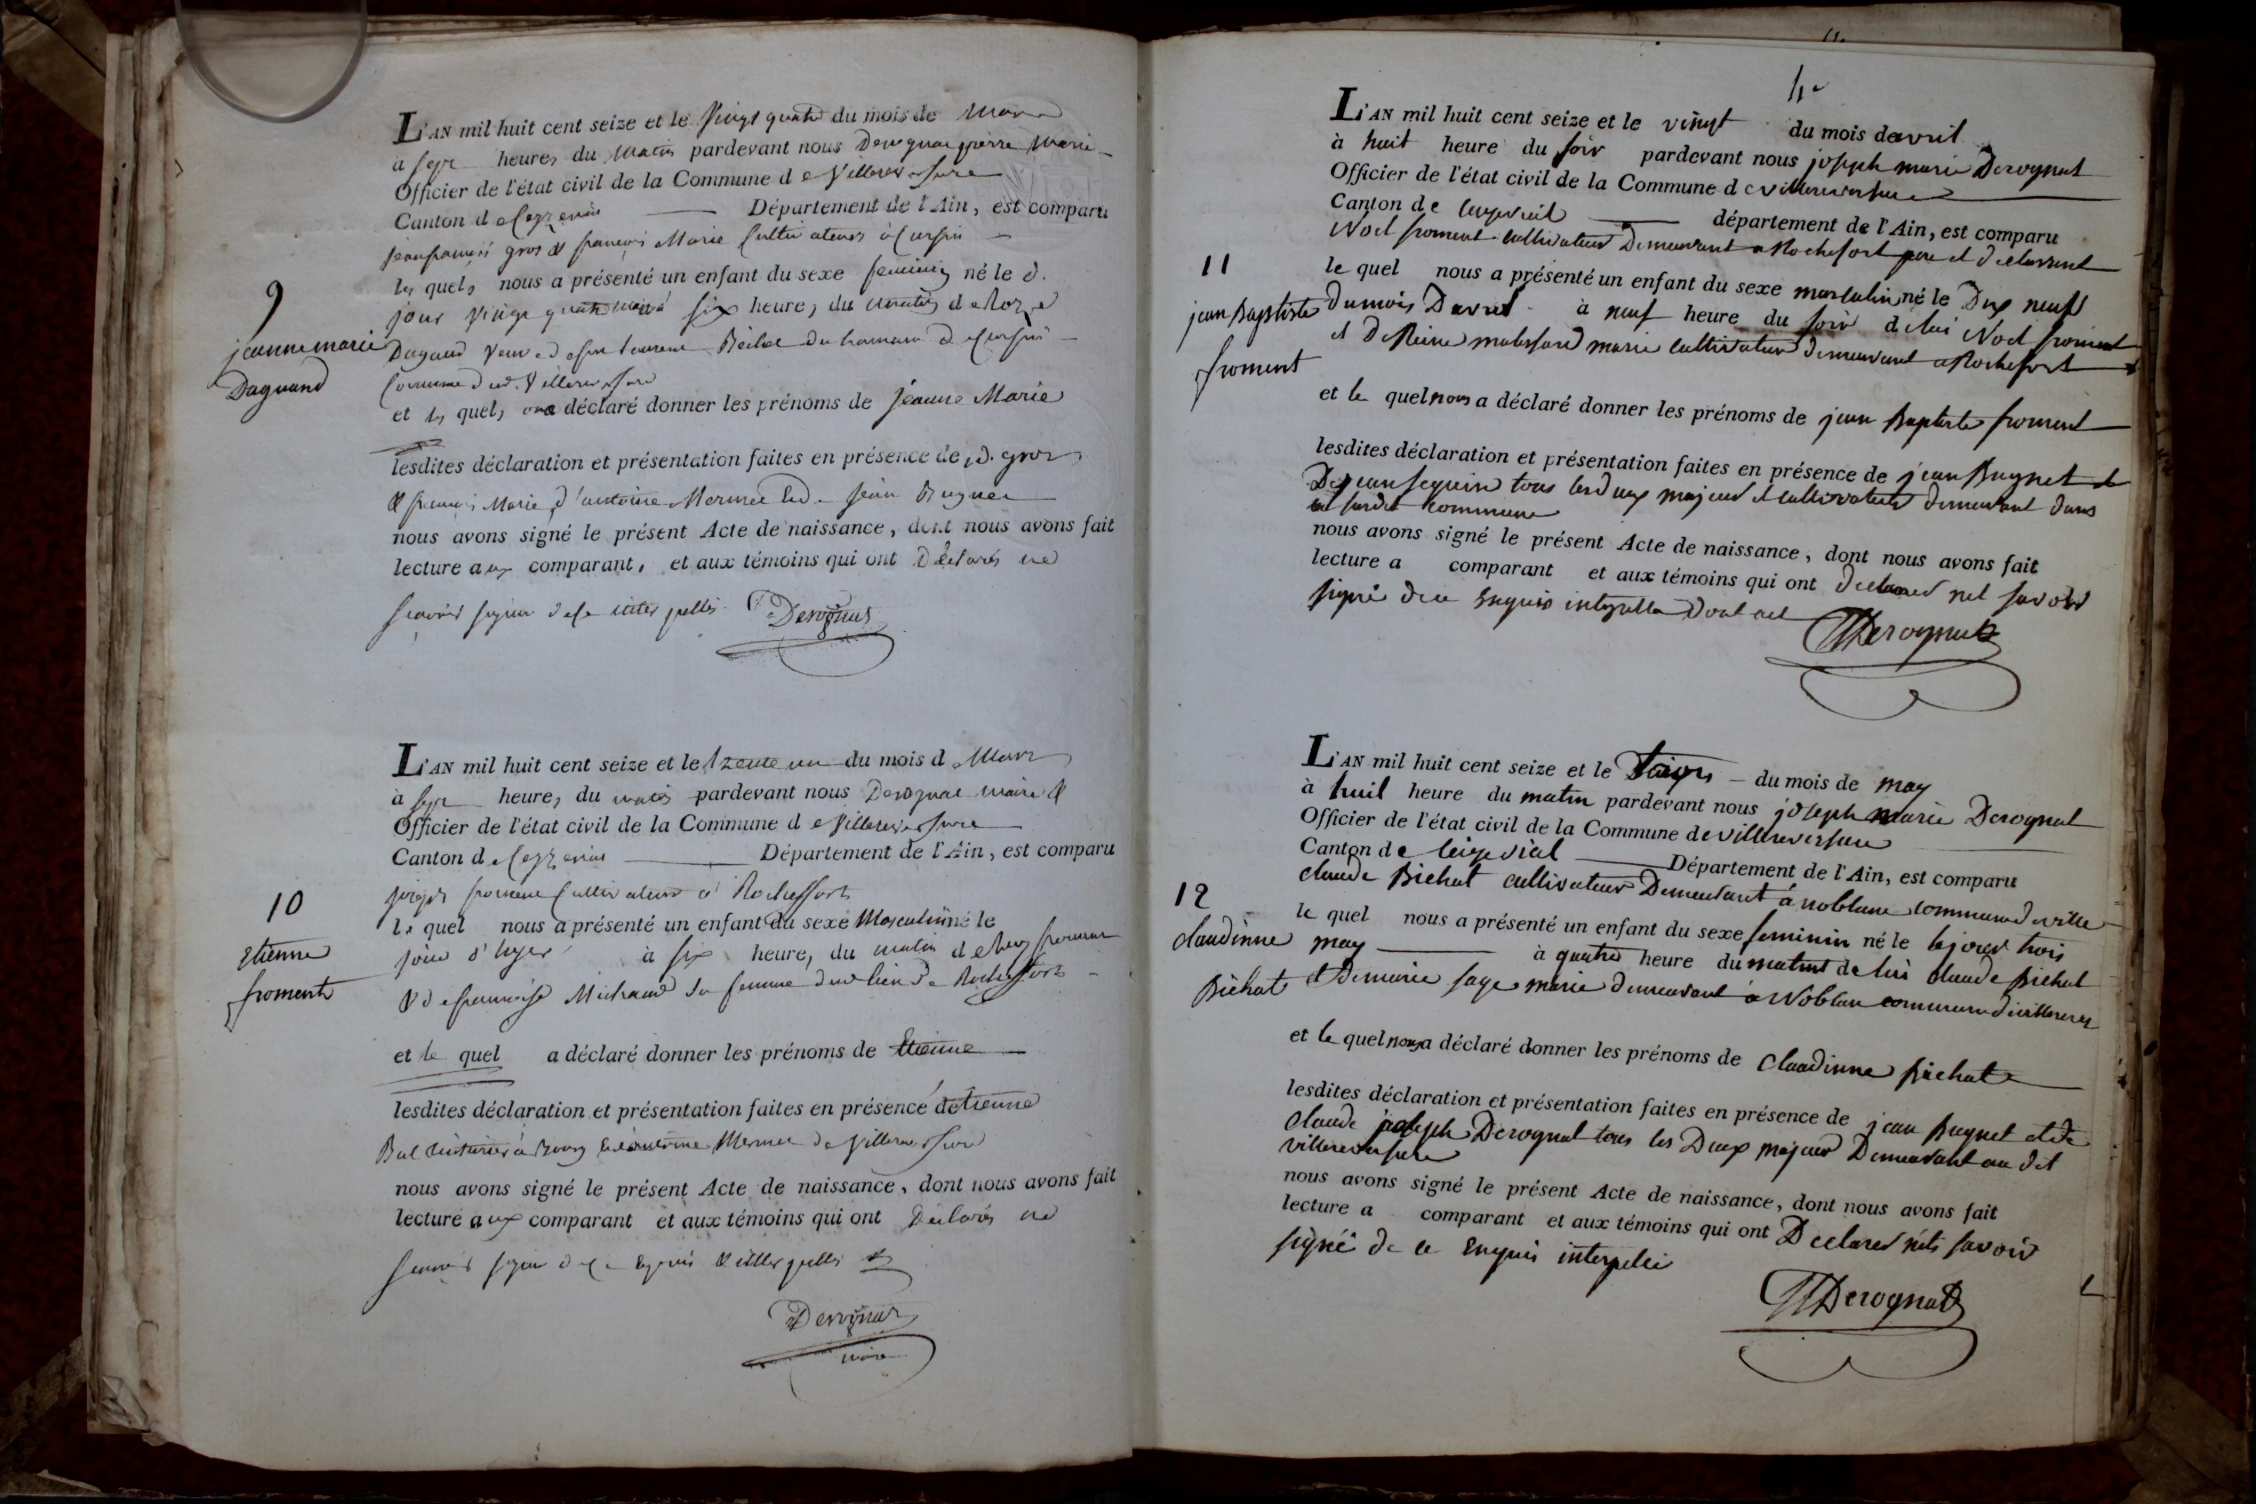 L'AN mil huit cent seize et le vingt quatre du mois de Mars
à sept heures du matin pardevant nous Derognat pierre Marie
Officier de l'état civil de la Commune de Villereversure
Canton de Ceyzeriat Département de l'Ain, est comparu
jean françois gros & françois Marie Cultivateurs à
les quels nous a présenté un enfant du sexe feminin né le d.
jour vingt quatre mars à six heures du matin de
9
jeanne marie
Daguand
Veuve de
Commune de Villereversure
et les quels ont déclaré donner les prénoms de jeanne Marie
lesdites déclaration et présentation faites en présence de d. gros
& francois Marie, d'antoine Mermet Et de jean Bugnet
nous avons signé le présent Acte de naissance, dont nous avons fait
lecture aux comparant, et aux témoins qui ont Declarés ne
scavoir signer de ce
Derognat
L'AN mil huit cent seize et le trente un du mois de Mars
à sept heures du matin pardevant nous Derognat maire &
Officier de l'état civil de la Commune de Villereversure
Canton de Ceyzeriat Département de l'Ain, est comparu
froment Cultivateur à Rochefort
10
Etienne
froment
le quel nous a présenté un enfant du sexe Masculin né le
jour d'hyer à six heures du matin de froment
& de françoise Michaud sa femme dud. lieu de Rochefort
et le quel a déclaré donner les prénoms de Etienne
lesdites déclaration et présentation faites en présence d'etienne
à Bourg antoine Mermet de Villereversure
nous avons signé le présent Acte de naissance, dont nous avons fait
lecture aux comparant et aux témoins qui ont Declarés ne
scavoir signer de ce Enquis & interpellés
Derognat
maire
L'AN mil huit cent seize et le vingt du mois davril
à huit heure du soir pardevant nous joseph marie Derognat
Officier de l'état civil de la Commune de villereversure
Canton de département de l'Ain, est comparu
Noel froment cultivateur Demeurant a Rochefort pere et declarant
11
jean Baptiste
froment
le quel nous a présenté un enfant du sexe masculin né le Dix neuf
dumois Davril à neuf heure du soir de lui Noel froment
et de Reine marie cultivateur demeurant a Rochefort
et le quel nous a déclaré donner les prénoms de jean Baptiste froment
lesdites déclaration et présentation faites en présence de jean Bugnet et
De jean seguin tous les deux majeur et cultivateur demeurant dans
commune
nous avons signé le présent Acte de naissance, dont nous avons fait
lecture a comparant et aux témoins qui ont declarer savoir
signé de ce Enquis Dont act
Derognat
L'AN mil huit cent seize et le Troyis du mois de may
à huit heure du matin pardevant nous joseph marie Derognat
Officier de l'état civil de la Commune de villereversure
Canton de Département de l'Ain, est comparu
claude Bichat cultivateur Demeurant à noblane commune de ville
12
claudinne
Bichat
le quel nous a présenté un enfant du sexe feminin né le le jour trois
may à quatre heure du matin de lui claude Bichat
et De marie sage marie demeurant à Noblan commune de villerever
et le quel nous a déclaré donner les prénoms de claudinne Bichat
lesdites déclaration et présentation faites en présence de jean Bugnet et de
claude joseph Derognat tous les Deux majeur Demeurant au dit
villereversure
nous avons signé le présent Acte de naissance, dont nous avons fait
lecture a comparant et aux témoins qui ont Declarer savoir
signé de ce Enquis
Derognat